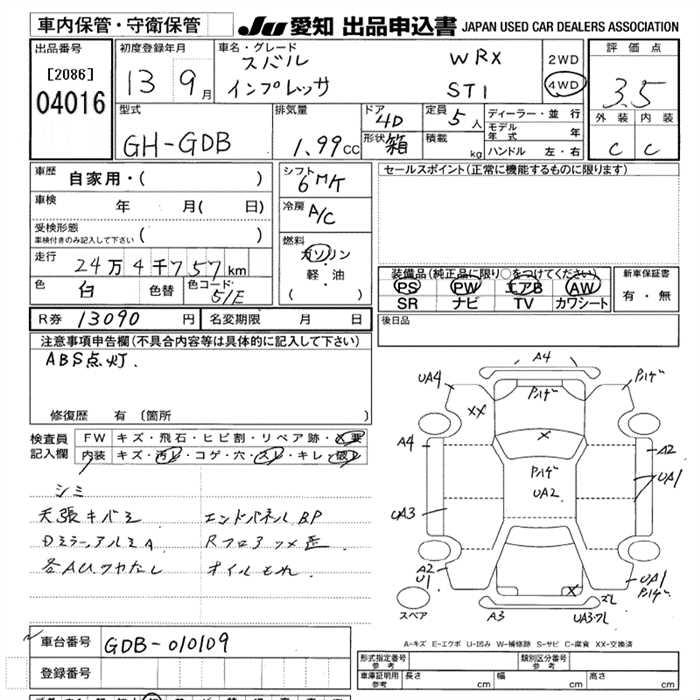 車内保管・守衛保管
JU 愛知 出品申込書 JAPAN USED CAR DEALERS ASSOCIATION
出品番号 初度登録年月 車名・グレード 評価点
[2086] 04016
13 9月
スバル WRX
インプレッサ STI
2WD
4WD
3.5
外装 内装
C C
型式 排気量 ドア 4D 定員 5人 ディーラー・並行
GH-GDB 1.99cc 形状 箱 積載 kg モデル年式 年
ハンドル 左・右
車歴 自家用・( )
シフト 6MK
セールスポイント(正常に機能するものに限ります)
車検 年 月( 日)
冷房 A/C
受検形態
車検付きのみ記入して下さい ( )
燃料
ガソリン
軽・油
( )
走行 24万4千757km
色 白 色替 色コード 51E
装備品(純正品に限り○をつけてください) 新車保証書
PS PW エアB AW
SR ナビ TV カワシート
有・無
R券 13090円 名変期限 月 日
後日品
注意事項申告欄(不具合内容等は具体的に記入して下さい)
ABS点灯.
修復歴 有 (箇所
検査員記入欄
FW キズ・飛石・ヒビ割・リペア跡・X要
内装 キズ・汚レ・コゲ・穴・スレ・キレ・破レ
シミ
天張キバミ エンドパネルBP
Dミラー,アルミA
各AU.ツヤなし オイルもれ
A4
UA4
XX
ハ゜ハケ゛
X
A4
A2
ハ゜ハケ゛
UA2
UA1
UA3
A2
U1
UA1
ハ゜ハケ゛
X
スペア
A3
UA3.スレ
スレ
A-キズ E-エクボ U-凹み W-補修跡 S-サビ C-腐食 XX-交換済
車台番号 GDB-010109
登録番号
形式指定番号 参考 類別区分番号 参考
車庫証明用 参考 長さ cm 幅 cm 高さ cm